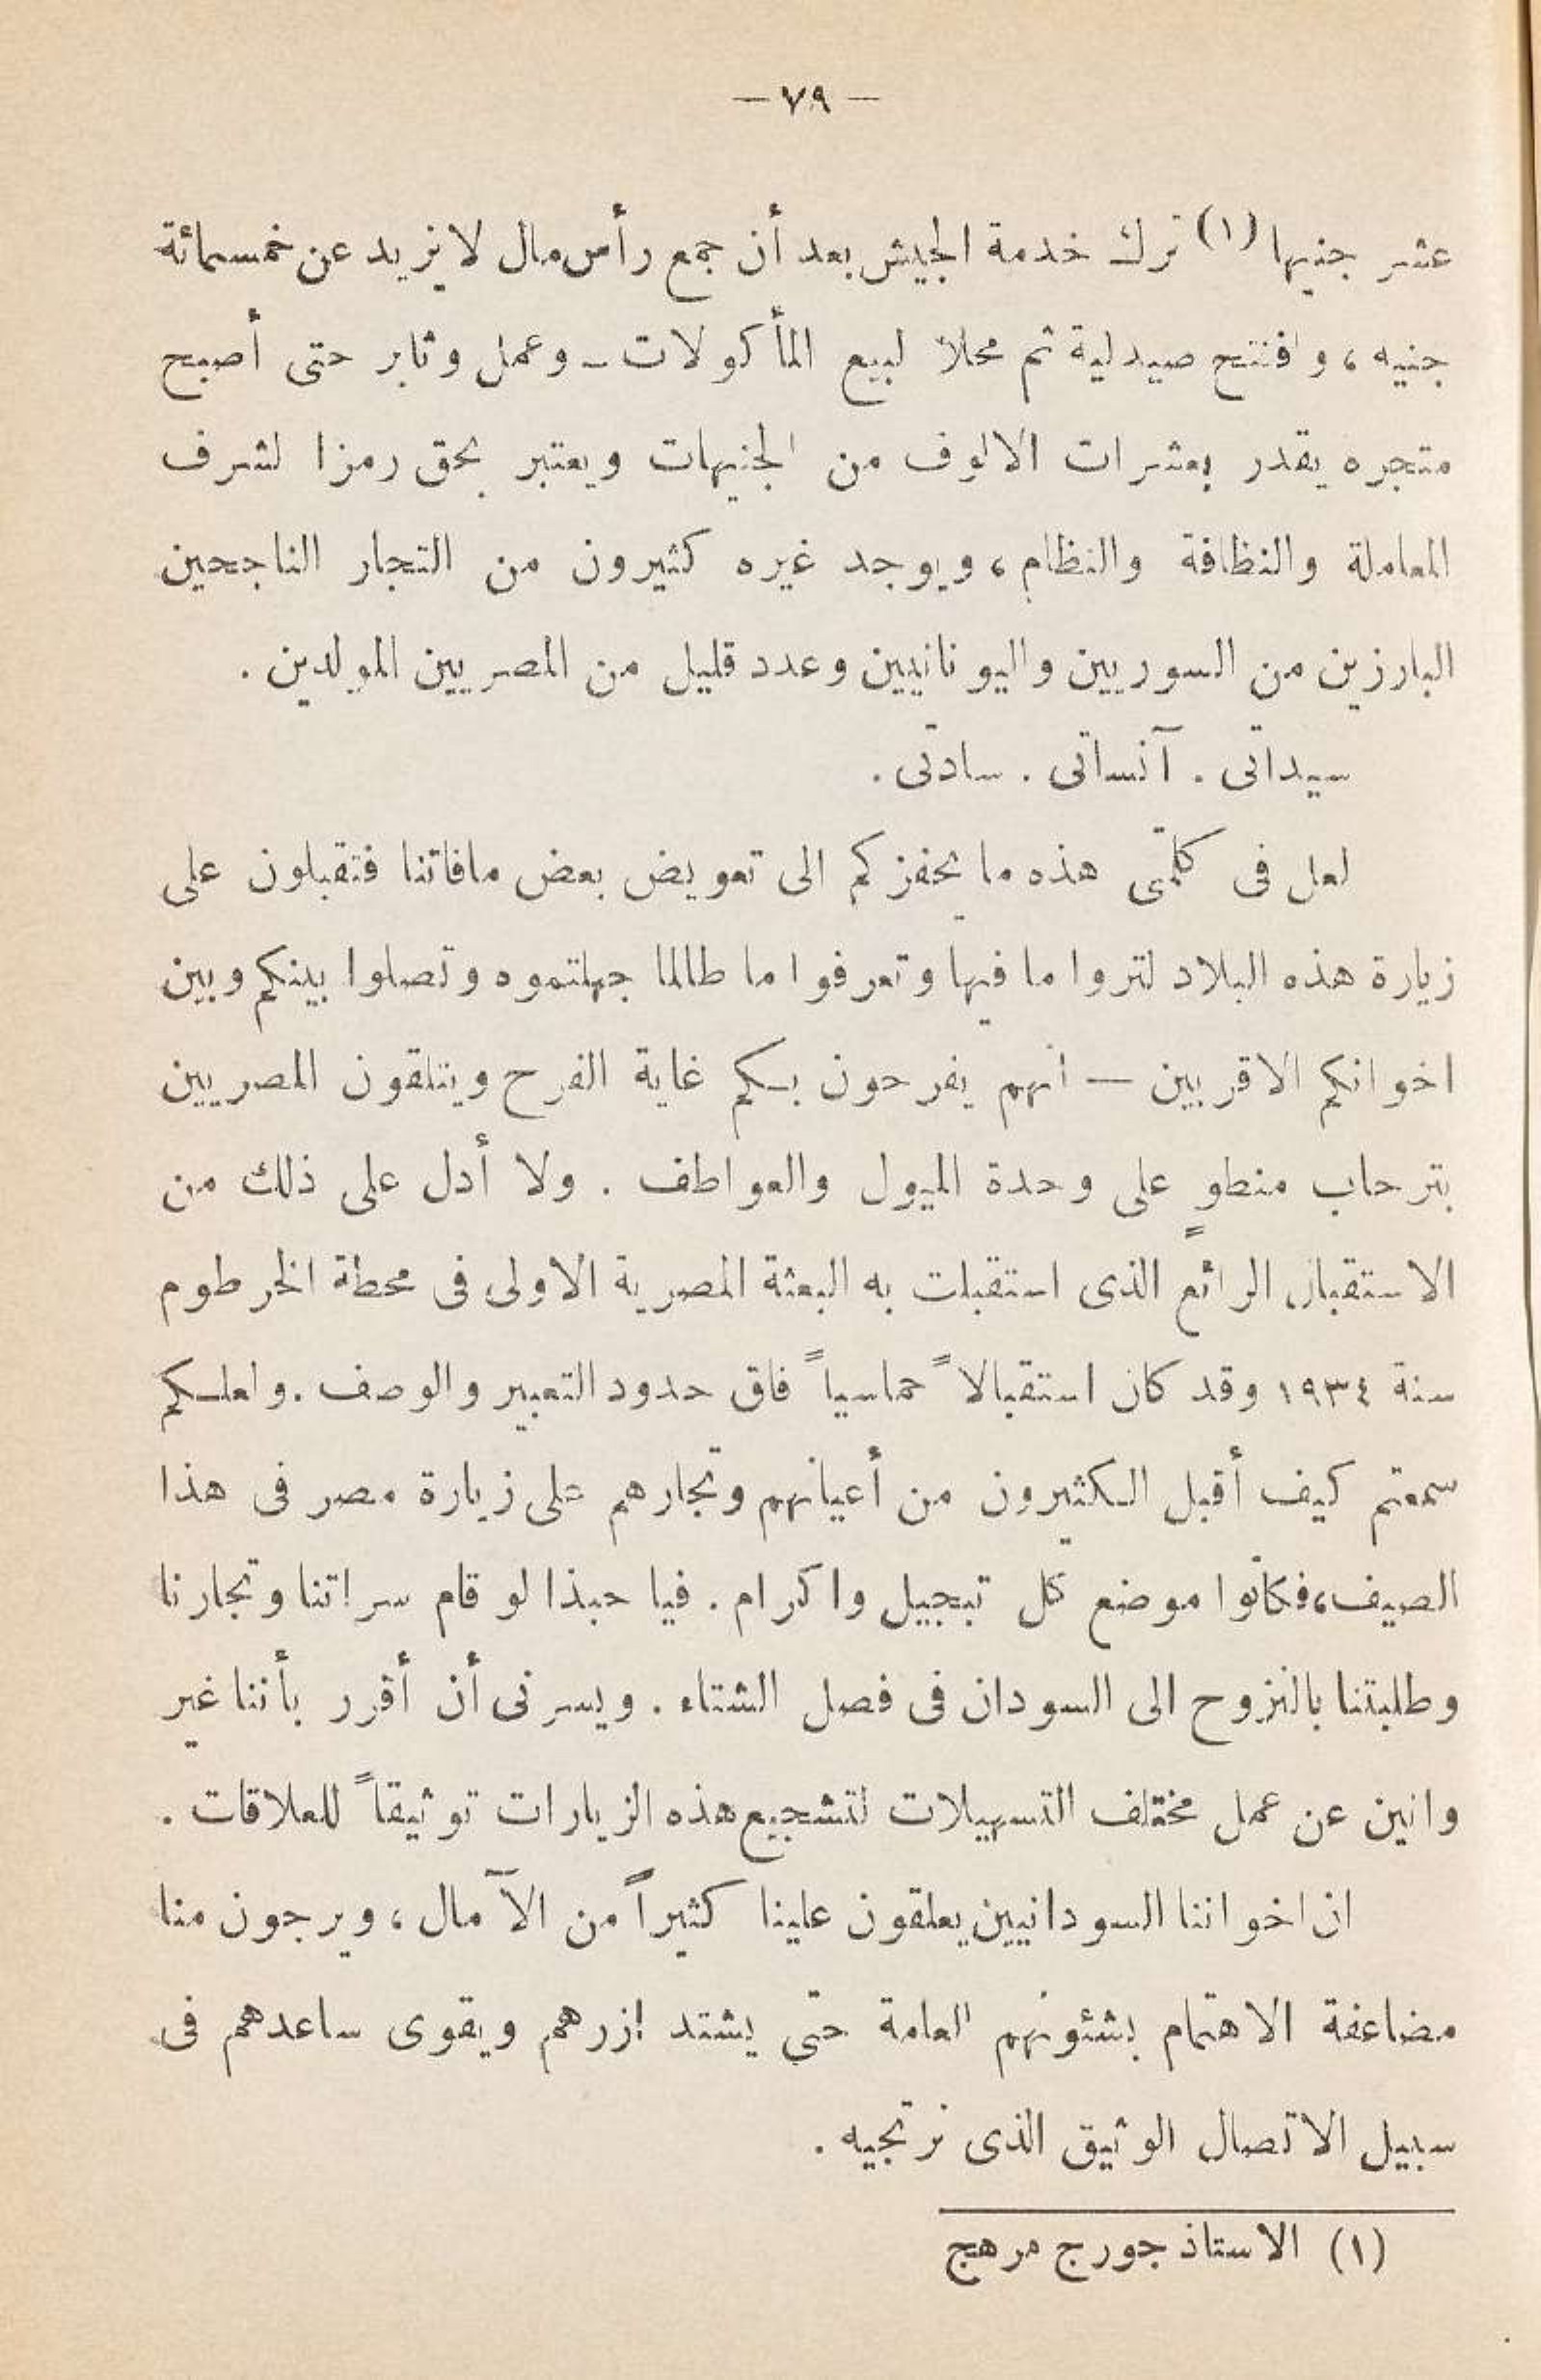 — ٧٩ —
عشر جنيها (١) ترك خدمة الجيش بعد أن جمع رأس مال لا يزيد عن خمسمائة
جنيه ، وافتتح صيدلية ثم محلا لبيع المأكولات ــ وعمل وثابر حتى أصبح
متجره يقدر بعشرات الالوف من الجنيهات ويعتبر بحق رمزا لشرف
المعاملة والنظافة والنظام ، ويوجد غيره كثيرون من التجار الناجحين
البارزين من السوريين واليونانيين وعدد قليل من المصريين المولدين .
سيداتى . آنساتى . سادتى .
لعل فى كلمتى هذه ما يحفزكم الى تعويض بعض مافاتنا فتقبلون على
زيارة هذه البلاد لتروا ما فيها وتعرفوا ما طالما جهلتموه وتصلوا بينكم وبين
اخوانكم الاقربين — انهم يفرحون بكم غاية الفرح ويتلقون المصريين
بترحاب منطوٍ على وحدة الميول والعواطف . ولا أدل على ذلك من
الاستقبال الرائع الذى استقبلت به البعثة المصرية الاولى فى محطة الخرطوم
سنة ١٩٣٤ وقد كان استقبالاً حماسياً فاق حدود التعبير والوصف . ولعلكم
سمعتم كيف أقبل الكثيرون من أعيانهم وتجارهم على زيارة مصر فى هذا
الصيف، فكانوا موضع كل تبجيل واكرام . فيا حبذا لو قام سراتنا وتجارنا
وطلبتنا بالنزوح الى السودان فى فصل الشتاء . ويسرنى أن أقرر بأننا غير
وانين عن عمل مختلف التسهيلات لتشجيع هذه الزيارات توثيقاً للعلاقات .
ان اخواننا السودانيين يعلقون علينا كثيراً من الآمال ، ويرجون منا
مضاعفة الاهتمام بشئونهم العامة حتى يشتد ازرهم ويقوى ساعدهم فى
سبيل الاتصال الوثيق الذى نرتجيه .
(١) الاستاذ جورج مرهج